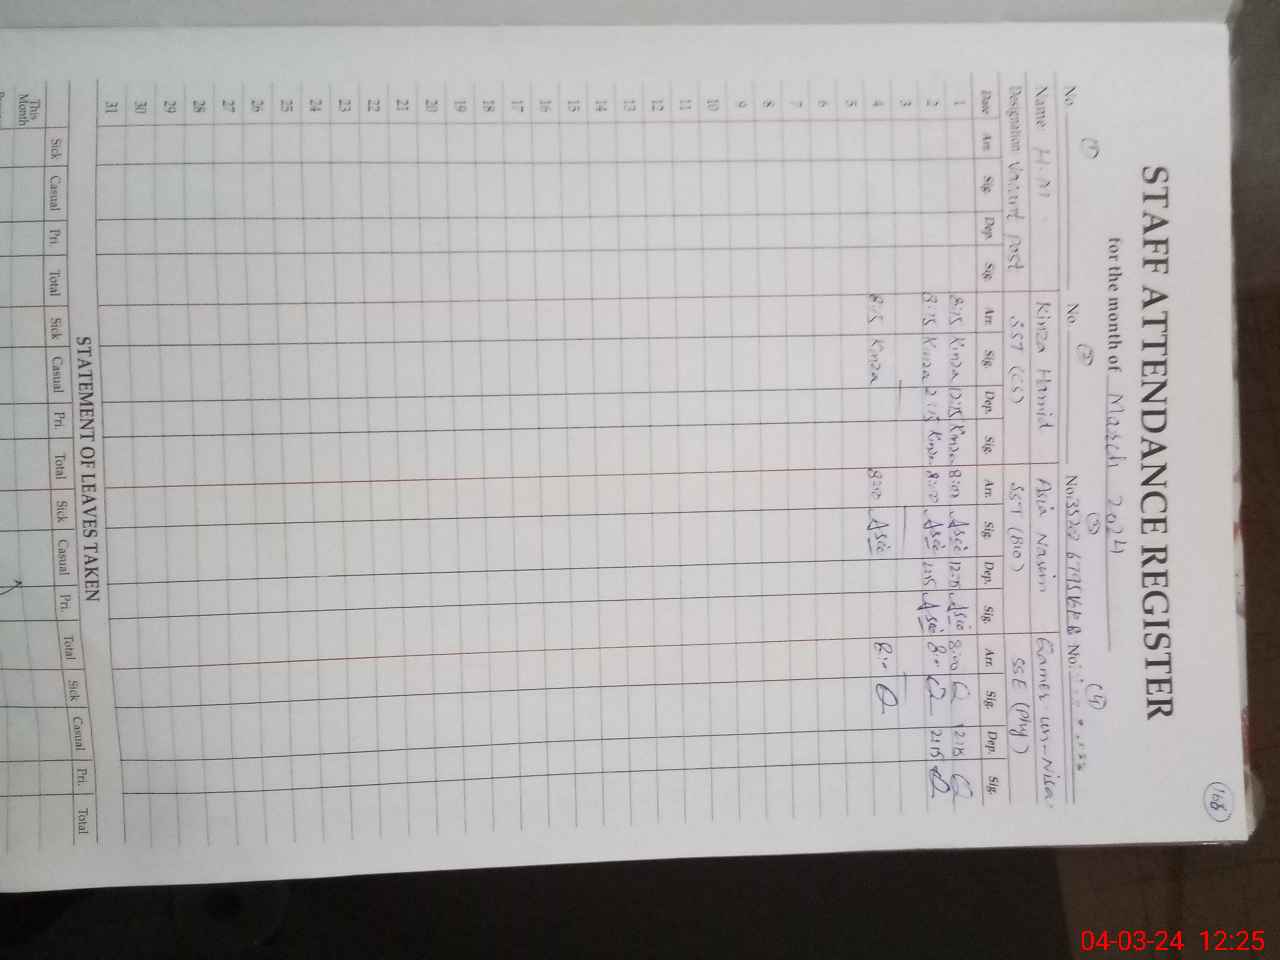 168
STAFF ATTENDANCE REGISTER
for the month of March 2024
(1) (2) (3) (4)
No. No. No. 35202 No.
Name: H.M Kinza Hamid Asia Nasim Qamer-un-Nisa
Designation Vacant Post SST (CS) SST (BIO) SSE (Phy)
Date Arr. Sig. Dep. Sig. Arr. Sig. Dep. Sig. Arr. Sig. Dep. Sig. Arr. Sig. Dep. Sig.
1 8:15 Kinza 12:15 Kinza 8:00 Asia 12:15 Asia 8:00 12:15
2 8:15 Kinza 2:15 Kinza 8:00 Asia 2:15 Asia 2:15
3
4 8:15 Kinza 8:00 Asia
5
6
7
8
9
10
11
12
13
14
15
16
17
18
19
20
21
22
23
24
25
26
27
28
29
30
31
STATEMENT OF LEAVES TAKEN
Sick Casual Pri. Total Sick Casual Pri. Total Sick Casual Pri. Total Sick Casual Pri. Total
This Month
04-03-24 12:25